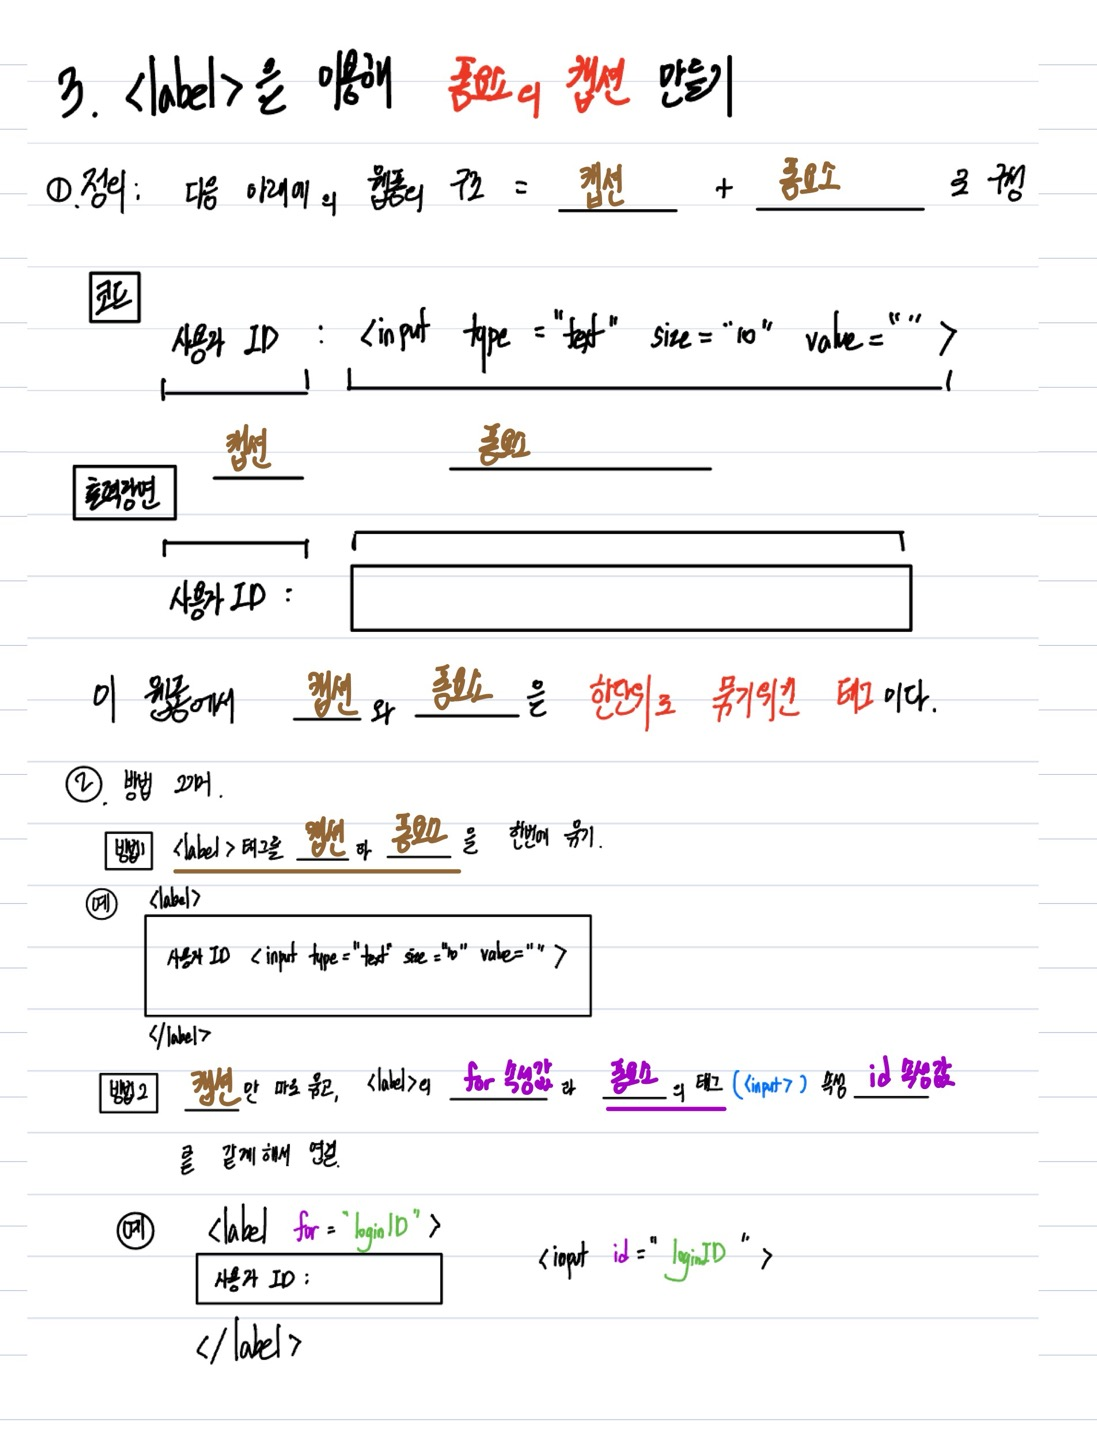 3. <label>을 이용해 폼요소의 캡션 만들기
①.정의: 다음 아래에의 웹폼의 구조 = 캡션 + 폼요소 로 구성
코드
사용자 ID : <input type="text" size="10" value="">
캡션 폼요소
출력장면
사용자 ID :
이 웹폼에서 캡션 와 폼요소 은 한단위로 묶기위한 태그이다.
②. 방법 2가지.
방법1 <label> 태그를 캡션 과 폼요소 을 한번에 묶기.
예 <label>
사용자 ID <input type="text" size="10" value="">
</label>
방법2 캡션만 따로 묶고, <label>의 for 속성값 과 폼요소의 태그 (<input>) 속성 id 속성값
를 같게 해서 연결.
예 <label for="loginID"> <input id="loginID">
사용자 ID :
</label>